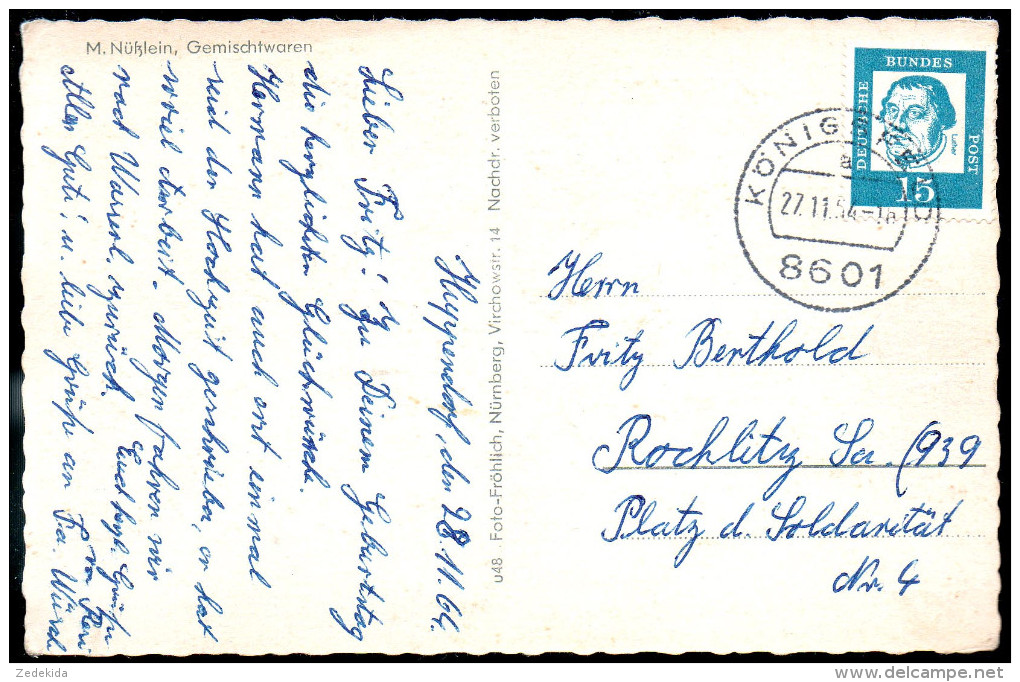 M. Nüßlein, Gemischtwaren
Huppendorf, den 28.11.64.
Lieber Fritz! Zu Deinem Geburtstag
die herzlichsten Glückwünsche.
Hermann hat auch erst einmal
seid der Hochzeit geschrieben, er hat
soviel Arbeit. Morgen fahren wir
nach zurück.
Alles Gute! u. liebe Grüße an Fa.
u48 Foto-Fröhlich, Nürnberg, Virchowstr. 14 Nachdr. verboten
DEUTSCHE
BUNDES
POST
Luther
15
KÖNIGSFELD
a
27.11.64-18
8601
Herrn
Fritz Berthold
Rochlitz Sa. (939
Platz d. Soldarität
Nr. 4
Zedekida
www.delcampe.net